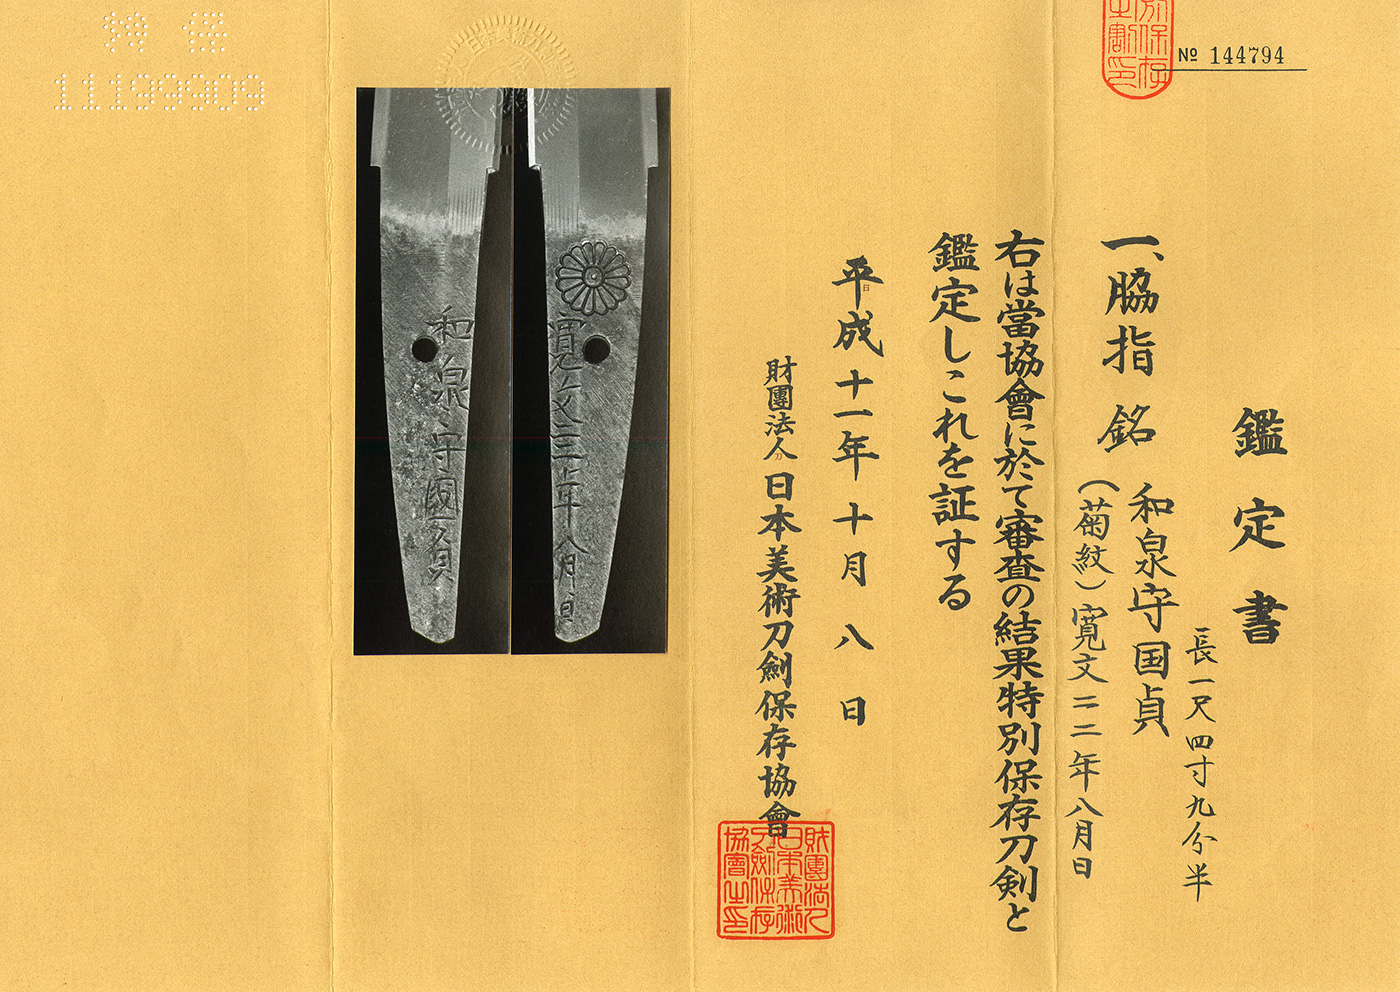 № 144794
鑑定書
一、脇指 銘 和泉守国貞
(菊紋)寛文二二年八月日
長一尺四寸九分半
右は當協會に於て審査の結果特別保存刀剣と
鑑定しこれを証する
平成十一年十月八日
財團法人 日本美術刀劍保存協會
財團法人
日本美術
刀劍保存
協會之印
寛文二二年八月日
和泉守國貞
11199909